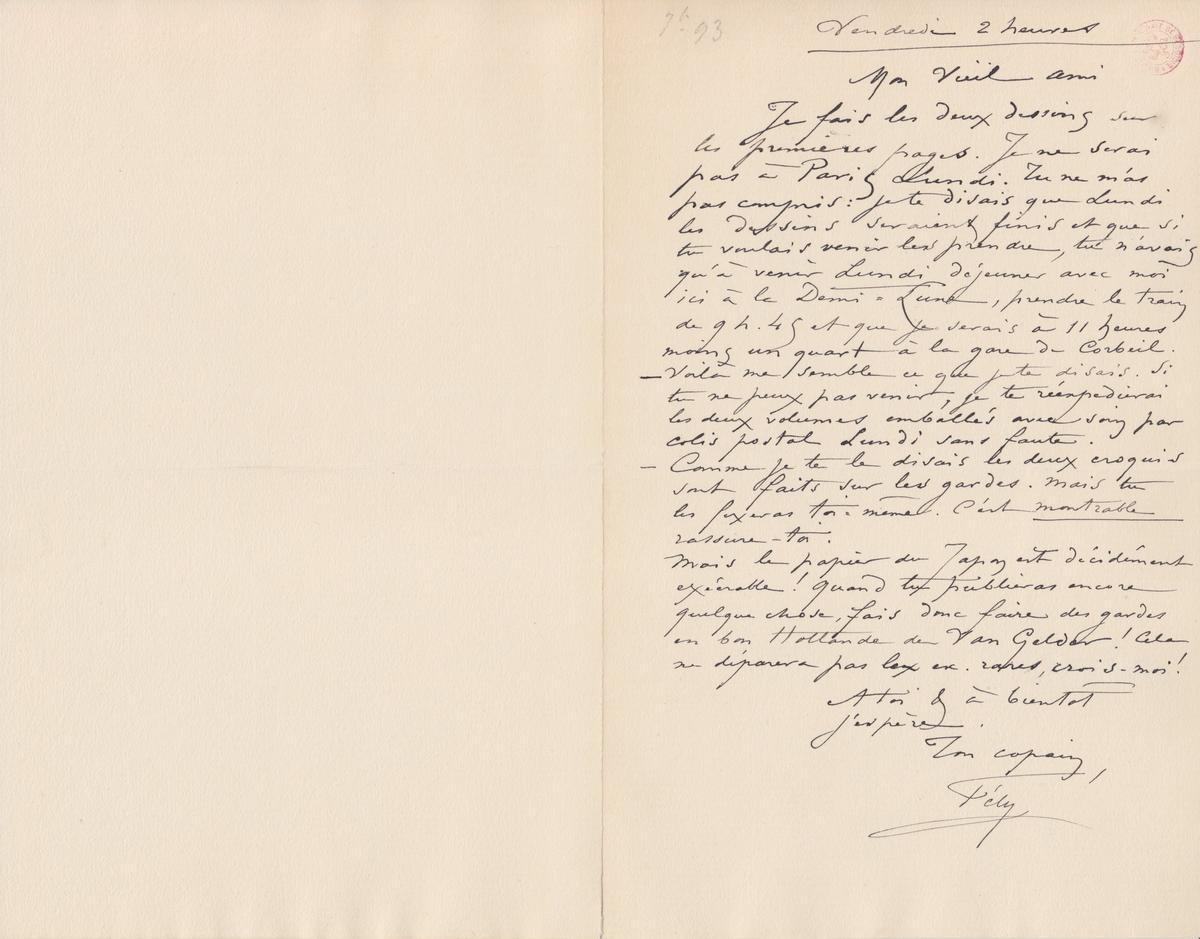 7bre 93
Vendredi 2 heures
Mon Vieil ami
Je fais les deux dessins sur
les premières pages. Je ne serai
pas à Paris Lundi. Tu ne m'as
pas compris : je te disais que Lundi
les dessins seraient finis et que si
tu voulais venir les prendre, tu n'avais
qu'à venir Lundi déjeuner avec moi
ici à la Demi=Lune, prendre le train
de 9 h. 45 et que je serais à 11 heures
moins un quart à la gare de Corbeil.
— Voilà me semble ce que je te disais. Si
tu ne peux pas venir, je te réexpédierai
les deux volumes emballés avec soin par
colis postal Lundi sans faute.
— Comme je te le disais les deux croquis
sont faits sur les gardes. Mais tu
les fixeras toi=même. C'est montrable
rassure-toi.
Mais le papier du Japon est décidément
exécrable ! Quand tu publieras encore
quelque chose, fais donc faire des gardes
en bon Hollande de Van Gelder ! Cela
ne déparera pas les ex. rares, crois-moi !
A toi & à bientôt
j'espère.
Ton copain,
Fély